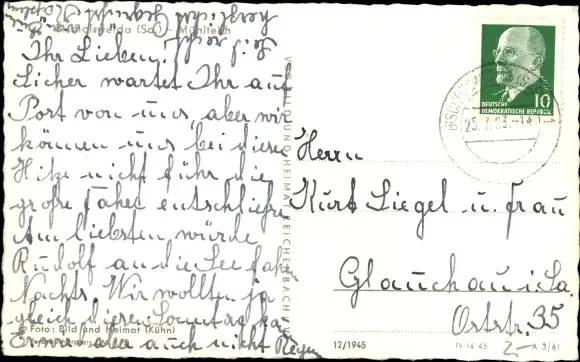 Bischofswerda (Sa.) - Mühlteich
Ihr Lieben!
Sicher wartet Ihr auf
Post von uns, aber wir
können uns bei dieser
Hitze nicht für die
große Fahrt entschließen
Am liebsten würde
Rudolf an die See fahren
Nachts. Wir wollten ja
gleich diesen Sonntag
aber auch nicht Regen
Seid recht
herzlichst gegrüßt
Foto: Bild und Heimat (Kühn)
VERLAG BILD UND HEIMAT REICHENBACH
12/1945
IV 14 45
A 3/61
DEUTSCHE
DEMOKRATISCHE REPUBLIK
10
Herrn
Kurt Siegel u. Frau
Glauchau i. Sa.
Oststr. 35